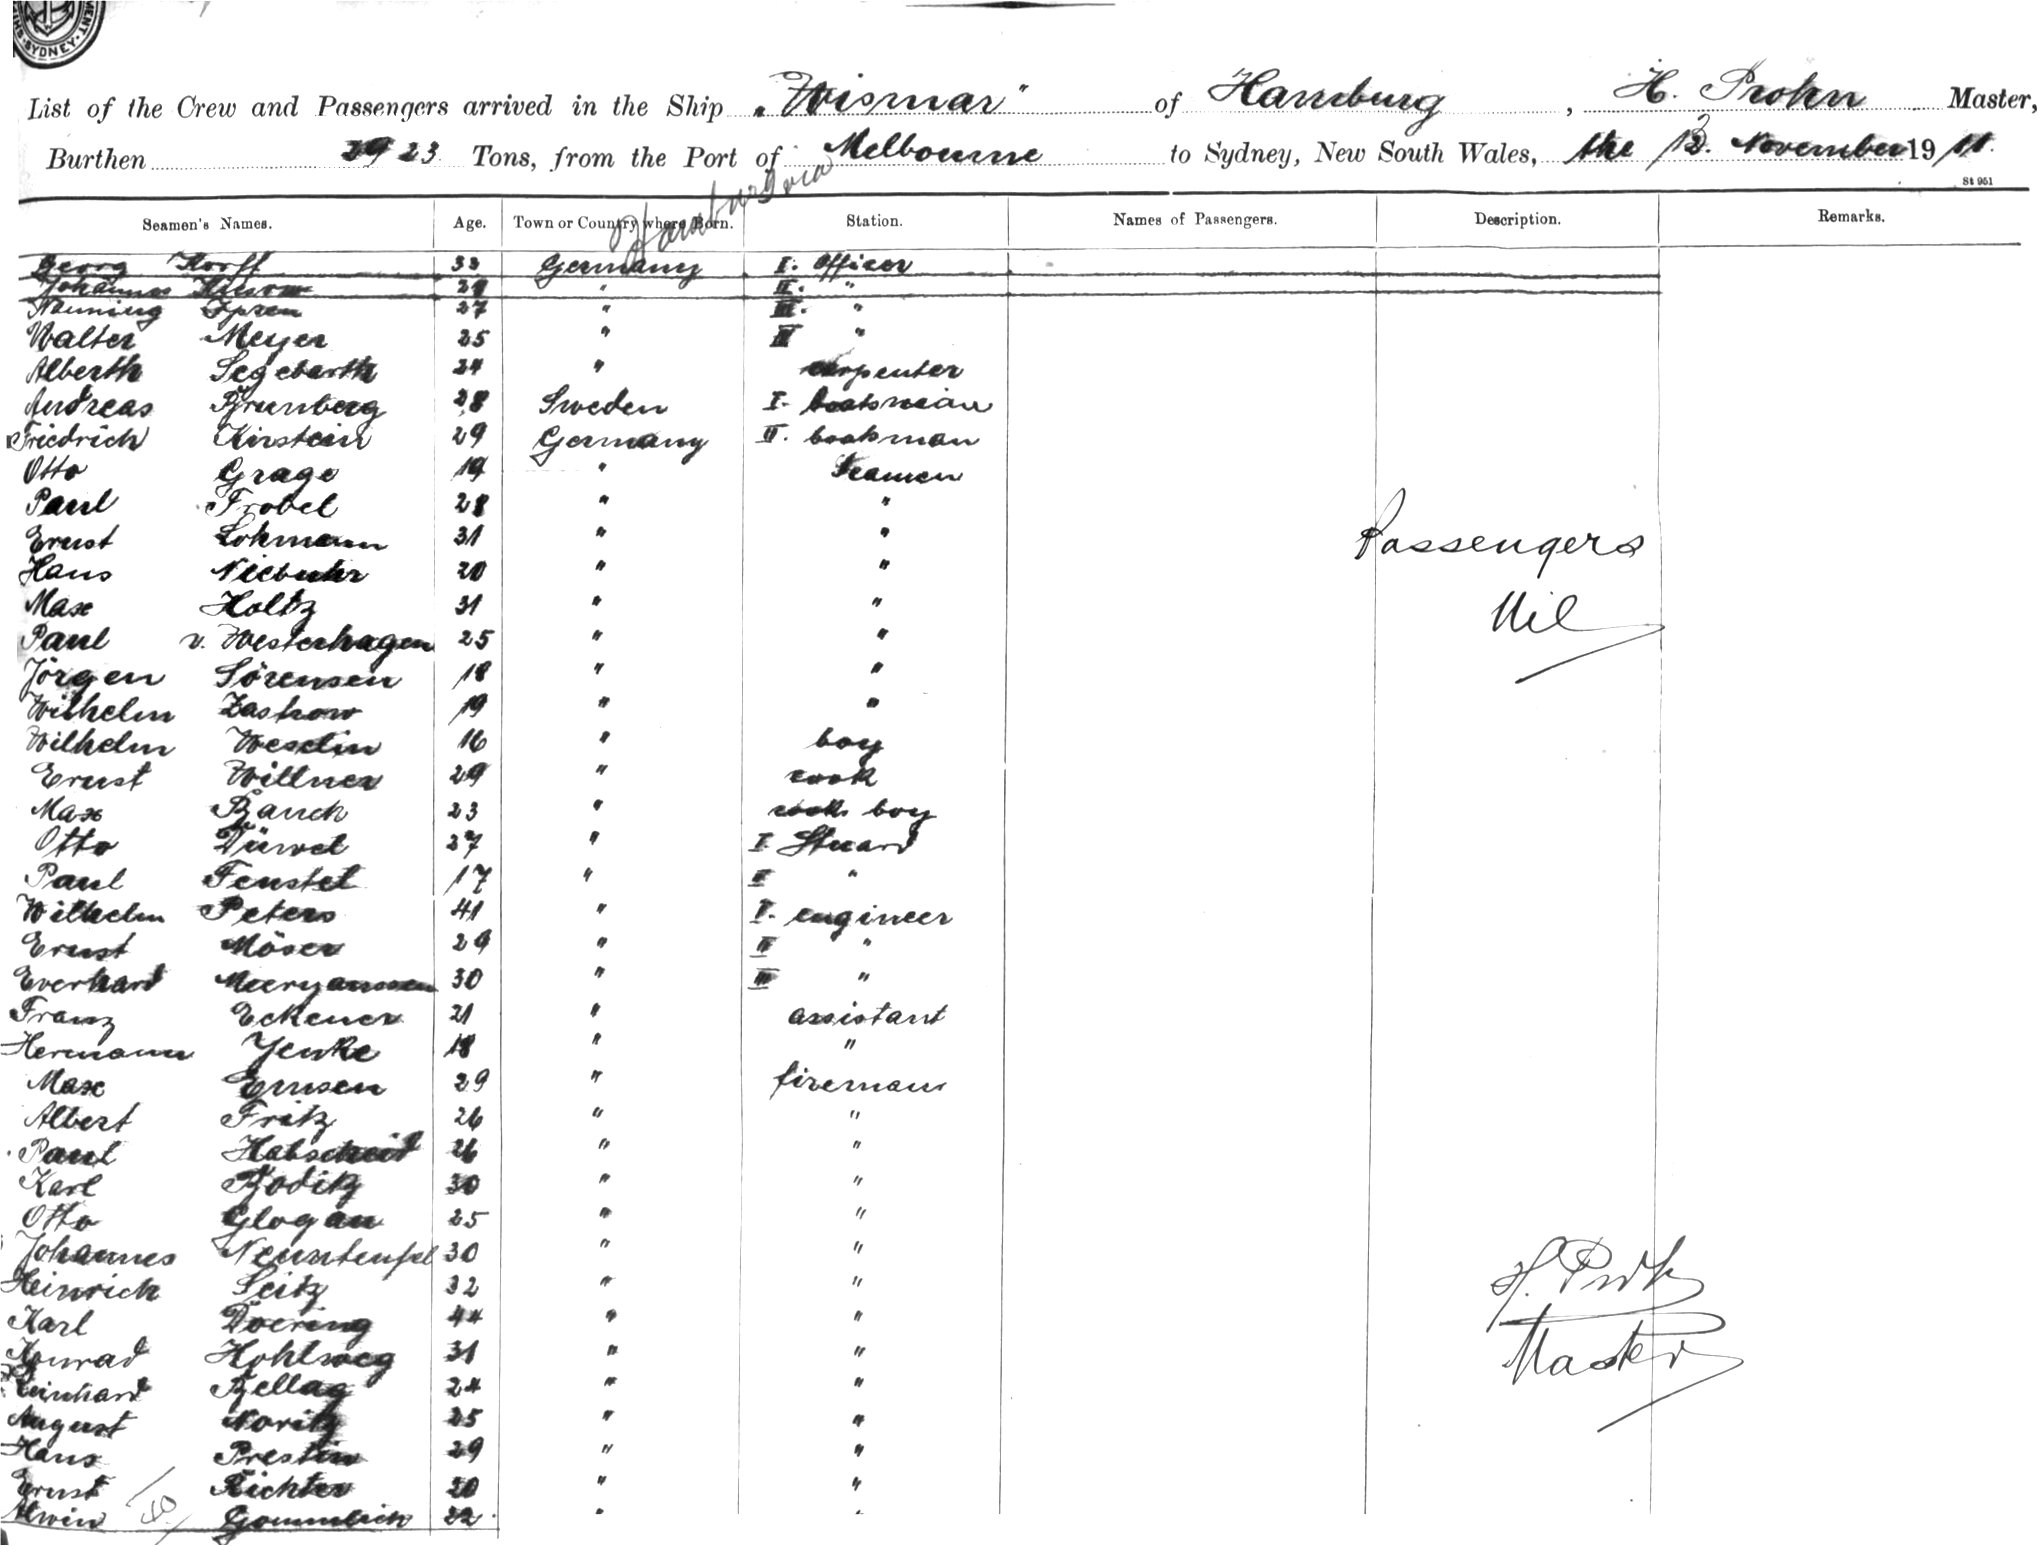 SYDNEY
List of the Crew and Passengers arrived in the Ship „Wismar" of Hamburg, H. Prohn Master,
Burthen 2923 Tons, from the Port of Hamburg via Melbourne to Sydney, New South Wales, the 13. November 1911.
St 951
Seamen's Names. Age. Town or Country where Born. Station. Names of Passengers. Description. Remarks.
Georg Korff 33 Germany I. Officer
Johannes 29 " II. "
Nanning Ipsen 27 " III. "
Walter Meyer 25 " "
Alberth Segebarth 24 " carpenter
Andreas Brunberg 28 Sweden I. boatsman
Friedrich Kirstein 29 Germany II. bootsman
Otto Grage 19 " Seamen
Paul Frobel 28 " "
Ernst Lohmann 31 " "
Hans Niebuhr 20 " "
Max Holtz 31 " "
Paul v. Westerhagen 25 " "
Jörgen Sörensen 18 " "
Wilhelm Zastrow 19 " "
Wilhelm Weselin 16 " boy
Ernst Willner 29 " cook
Max Bauch 23 " cooks boy
Otto Düwel 27 " I Stuard
Paul Fenstel 17 " II "
Wilhelm Peters 41 " I. engineer
Ernst Möser 29 " II "
Everhard Meeryanssen 30 " III "
Franz Eckener 21 " assistant
Hermann Jenke 18 " "
Max Ernsen 29 " fireman
Albert Fritz 26 " "
Paul Habscheid 26 " "
Karl Boditz 30 " "
Otto Glogau 25 " "
Johannes Neunteufel 30 " "
Heinrich Seitz 32 " "
Karl Doering 44 " "
Konrad Hohlweg 31 " "
Reinhard Bellag 24 " "
August Noritz 25 " "
Hans Prestin 29 " "
Ernst Richter 20 " "
Alwin 22 " "
Passengers
Nil
H. Prohn
Master